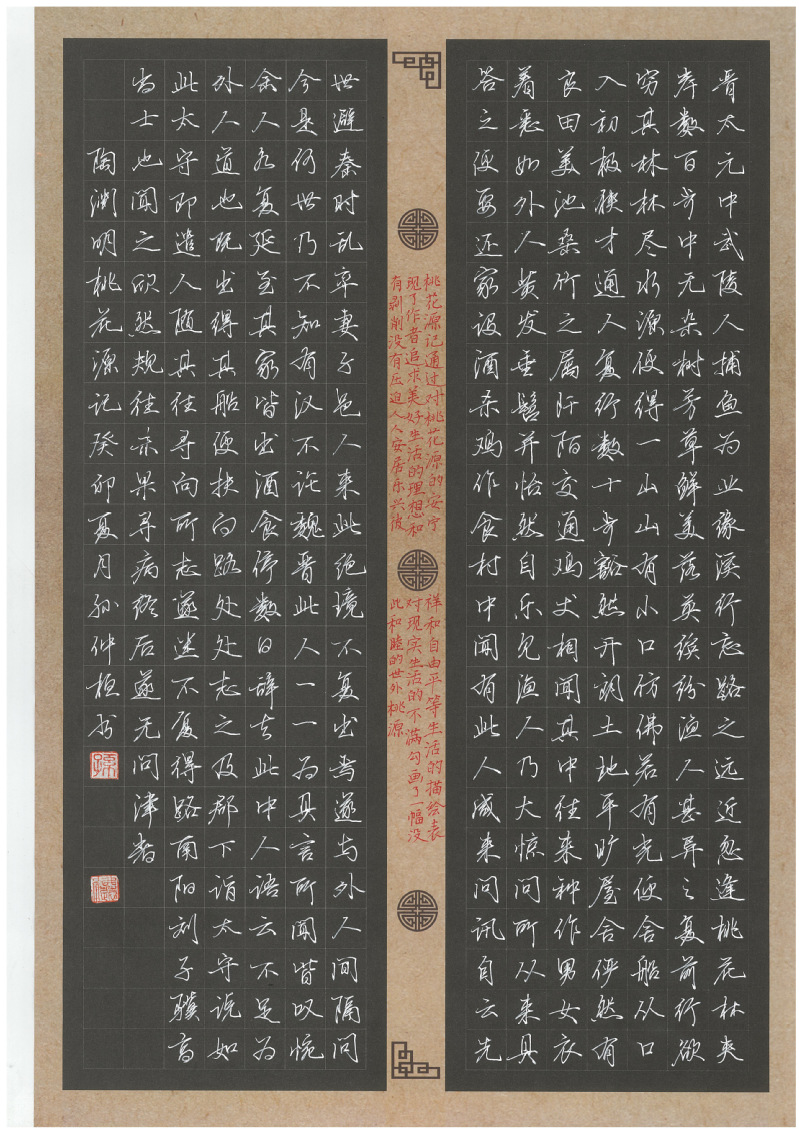 晋太元中武陵人捕鱼为业缘溪行忘路之远近忽逢桃花林夹
岸数百步中无杂树芳草鲜美落英缤纷渔人甚异之复前行欲
穷其林林尽水源便得一山山有小口仿佛若有光便舍船从口
入初极狭才通人复行数十步豁然开朗土地平旷屋舍俨然有
良田美池桑竹之属阡陌交通鸡犬相闻其中往来种作男女衣
着悉如外人黄发垂髫并怡然自乐见渔人乃大惊问所从来具
答之便要还家设酒杀鸡作食村中闻有此人咸来问讯自云先
桃花源记通过对桃花源的安宁祥和自由平等生活的描绘表
现了作者追求美好生活的理想和对现实生活的不满勾画了一幅没
有剥削没有压迫人人安居乐兴彼此和睦的世外桃源
世避秦时乱率妻子邑人来此绝境不复出焉遂与外人间隔问
今是何世乃不知有汉不论魏晋此人一一为具言所闻皆叹惋
余人各复延至其家皆出酒食停数日辞去此中人语云不足为
外人道也既出得其船便扶向路处处志之及郡下诣太守说如
此太守即遣人随其往寻向所志遂迷不复得路南阳刘子骥高
尚士也闻之欣然规往未果寻病终后遂无问津者
陶渊明桃花源记癸卯夏月孙仲桓书